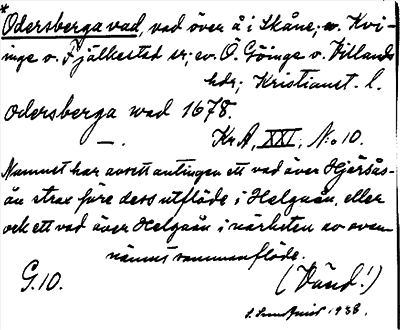 *Odersberga vad, vad över å i Skåne; ev. Kvi-
inge o. Fjälkestad sr; ev. Ö. Göinge o. Villands
hdr; Kristianst. l.
Odersberga wad 1678.
—. KrA, XXI; N:o 10.
Namnet har avsett antingen ett vad över Hjärsås-
ån strax före dess utflöde i Helgeån, eller
ock ett vad över Helgeån i närheten av ovan-
nämnt sammanflöde.
G.10. (Vänd!)
1938.